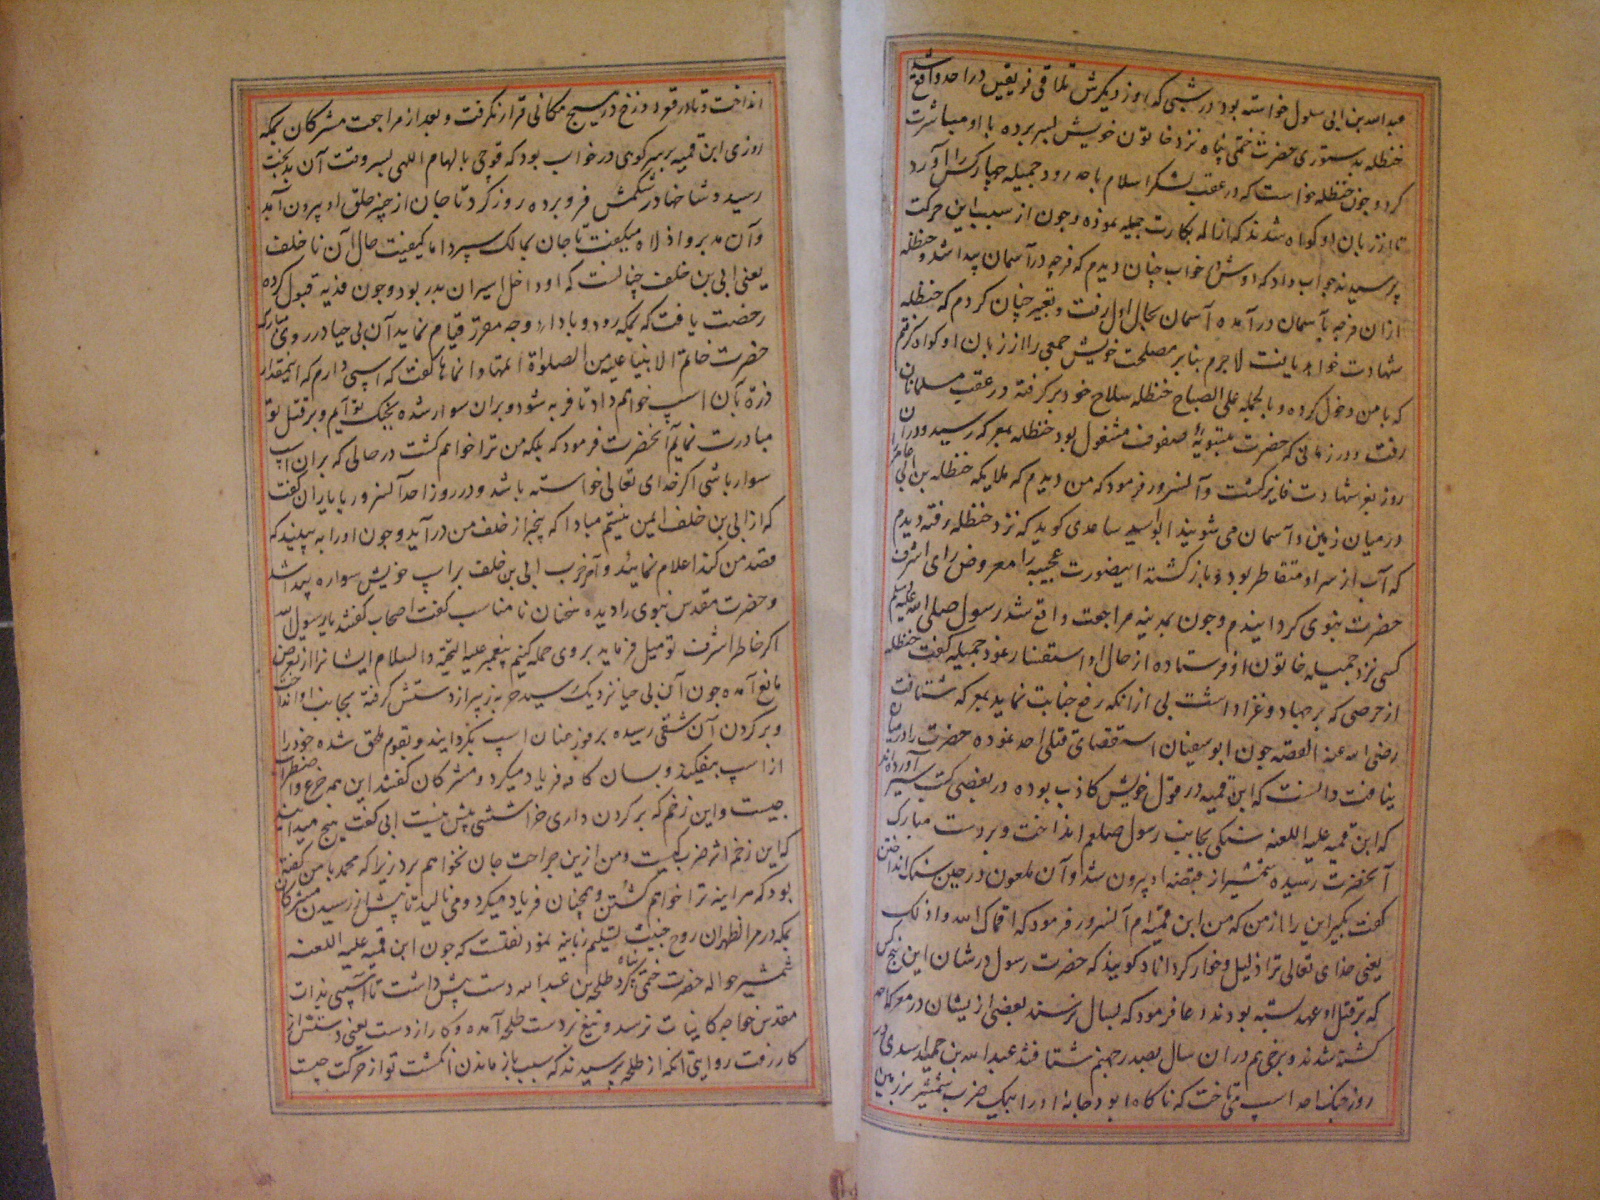 عبدالله بن ابی سلول خواسته بود در شبی که روز دیگرش تلاقی فریقین در احد واقع شد
حنظله بدستوری حضرت ختمی پناه نزد خاتون خویش بسر برده با او مباشرت
کرد و چون حنظله خواست که در عقب لشکر اسلام باحد رود جمیله چهار کس را آورد
تا از زبان او کواه شدند که ازاله بکارت جمیله نموده و چون از سبب این حرکت
پرسیدند جواب داد که دوش در خواب چنان دیدم که فرجه در آسمان پیدا شد و حنظله
ازان فرجه بآسمان درآمده آسمان بحال اول رفت و تعبیر چنان کردم که حنظله
شهادت خواهد یافت لاجرم بنابر مصلحت خویش جمعی را از زبان او کواه کرفتم
که با من دخول کرده و بالجمله علی الصباح حنظله سلاح خود برکرفته در عقب مسلمانان
رفت و در زمانی که حضرت بتسویهٔ صفوف مشغول بود حنظله بمعرکه رسید و دران
روز بعز شهادت فایز کشت و آنسرور فرمود که من دیدم که ملایکه حنظله بن ابی عامر را
در میان زمین و آسمان می شویند ابواسید ساعدی کوید که نزد حنظله رفته دیدم
که آب از سر او متقاطر بود و بازکشته اینصورت عجیبه را معروض رای اشرف
حضرت نبوی کردانیدم و چون بمدینه مراجعت واقع شد رسول صلی الله علیه وسلم
کسی نزد جمیله خاتون او فرستاده از حال او استفسار نمود جمیله کفت حنظله
از حرصی که بر جهاد و غزا داشت بی ازانکه رفع جنابت نماید بمعرکه شتافت
رضی الله عنه القصه چون ابوسفیان استقصای قتلی احد نموده حضرت را در میان
نیافت دانست که ابن قمیه در قول خویش کاذب بوده در بعضی کتب سیر آورده اند
که ابن قمیه علیه اللعنه سنکی بجانب رسول صلعم انداخت و بر دست مبارک
آنحضرت رسیده شمشیر از قبضه او بیرون شد و آن ملعون در حین سنک انداختن
کفت بکیر این را از من که من ابن قمئه ام آنسرور فرمود که اقماک الله و اذلک
یعنی خدای تعالی ترا ذلیل و خوار کرداناد کویند که حضرت رسول در شان این پنج کس
که بر قتل او عهد بسته بودند دعا فرمود که بسال نرسند بعضی ازیشان در معرکه احد
کشته شدند و برخی هم دران سال بصدر جهنم شتافتند عبدالله بن حمید اسدی در
روز جنک احد اسپ می تاخت که ناکاه ابودجانه او را بیک ضرب شمشیر بر زمین
انداخت و تا در قعر دوزخ در هیچ مکانی قرار نکرفت و بعد از مراجعت مشرکان بمکه
روزی ابن قمیه بر سر کوهی در خواب بود که قوچی بالهام اللهی بسر وقت آن بدبخت
رسید و شاخها در شکمش فرو برده روز کرد تا جان از چنبر حلق او بیرون آمد
و آن مدبر واذلاه میکفت تا جان بمالک سپرد اما کیفیت حال آن ناخلف
یعنی ابی بن خلف چنانست که او داخل اسیران بدر بود و چون فدیه قبول کرده
رخصت یافت که بمکه رود و بادای وجه مقرر قیام نماید آن بی حیا در روی مبارک
حضرت خاتم الانبیا علیه من الصلواة اتمها و انماها کفت که اسپی دارم که اینمقدار
ذرة بآن اسپ خواهم داد تا فربه شود و بران سوار شده بجنک تو آیم و بر قتل تو
مبادرت نمایم آنحضرت فرمود که بلکه من ترا خواهم کشت در حالی که بران اسپ
سوار باشی اکر خدای تعالی خواسته باشد و در روز احد آنسرور با یاران کفت
که از ابی بن خلف ایمن نیستم مبادا که بیخبر از خلف من درآید و چون او را به بینید که
قصد من کند اعلام نمایید و آخر حرب ابی بن خلف بر اسپ خویش سواره پیدا شد
و حضرت مقدس نبوی را دیده سخنان نامناسب کفت اصحاب کفتند یا رسول الله
اکر خاطر اشرف تو میل فرماید بر وی حمله کنیم پیغمبر علیه التحیة والسلام ایشانرا از تعرض
مانع آمده چون آن بی حیا نزدیک رسید حربه زبیر از دستش کرفته بجانب او انداخت
و بر کردن آن شقی رسیده بر فور عنان اسپ بکردانید و بقوم ملحق شده خود را
از اسپ بیفکند و بسان کاو فریاد میکرد و مشرکان کفتند این همه جزع و اضطراب
چیست و این زخم که بر کردن داری خراشی بیش نیست ابی کفت هیچ میدانید
که این زخم اثر ضرب کیست و من ازین جراحت جان نخواهم برد زیرا که محمد با من کفته
بود که هر اینه ترا خواهم کشتن و همچنان فریاد میکرد و می نالید تا پیش از رسیدن مشرکان
بمکه در مر الظهران روح خبیث تسلیم زبانیه نمود نقلست که چون ابن قمیه علیه اللعنه
شمشیر حواله حضرت ختمی پناه کرد طلحه بن عبدالله دست پیش داشت تا آسیبی بذات
مقدس خواجه کاینات نرسد و تیغ بر دست طلحه آمده و کار از دست یعنی دستش از
کار رفت روایتی آنکه از طلحه پرسیدند که سبب باز ماندن انکشت تو از حرکت چیست